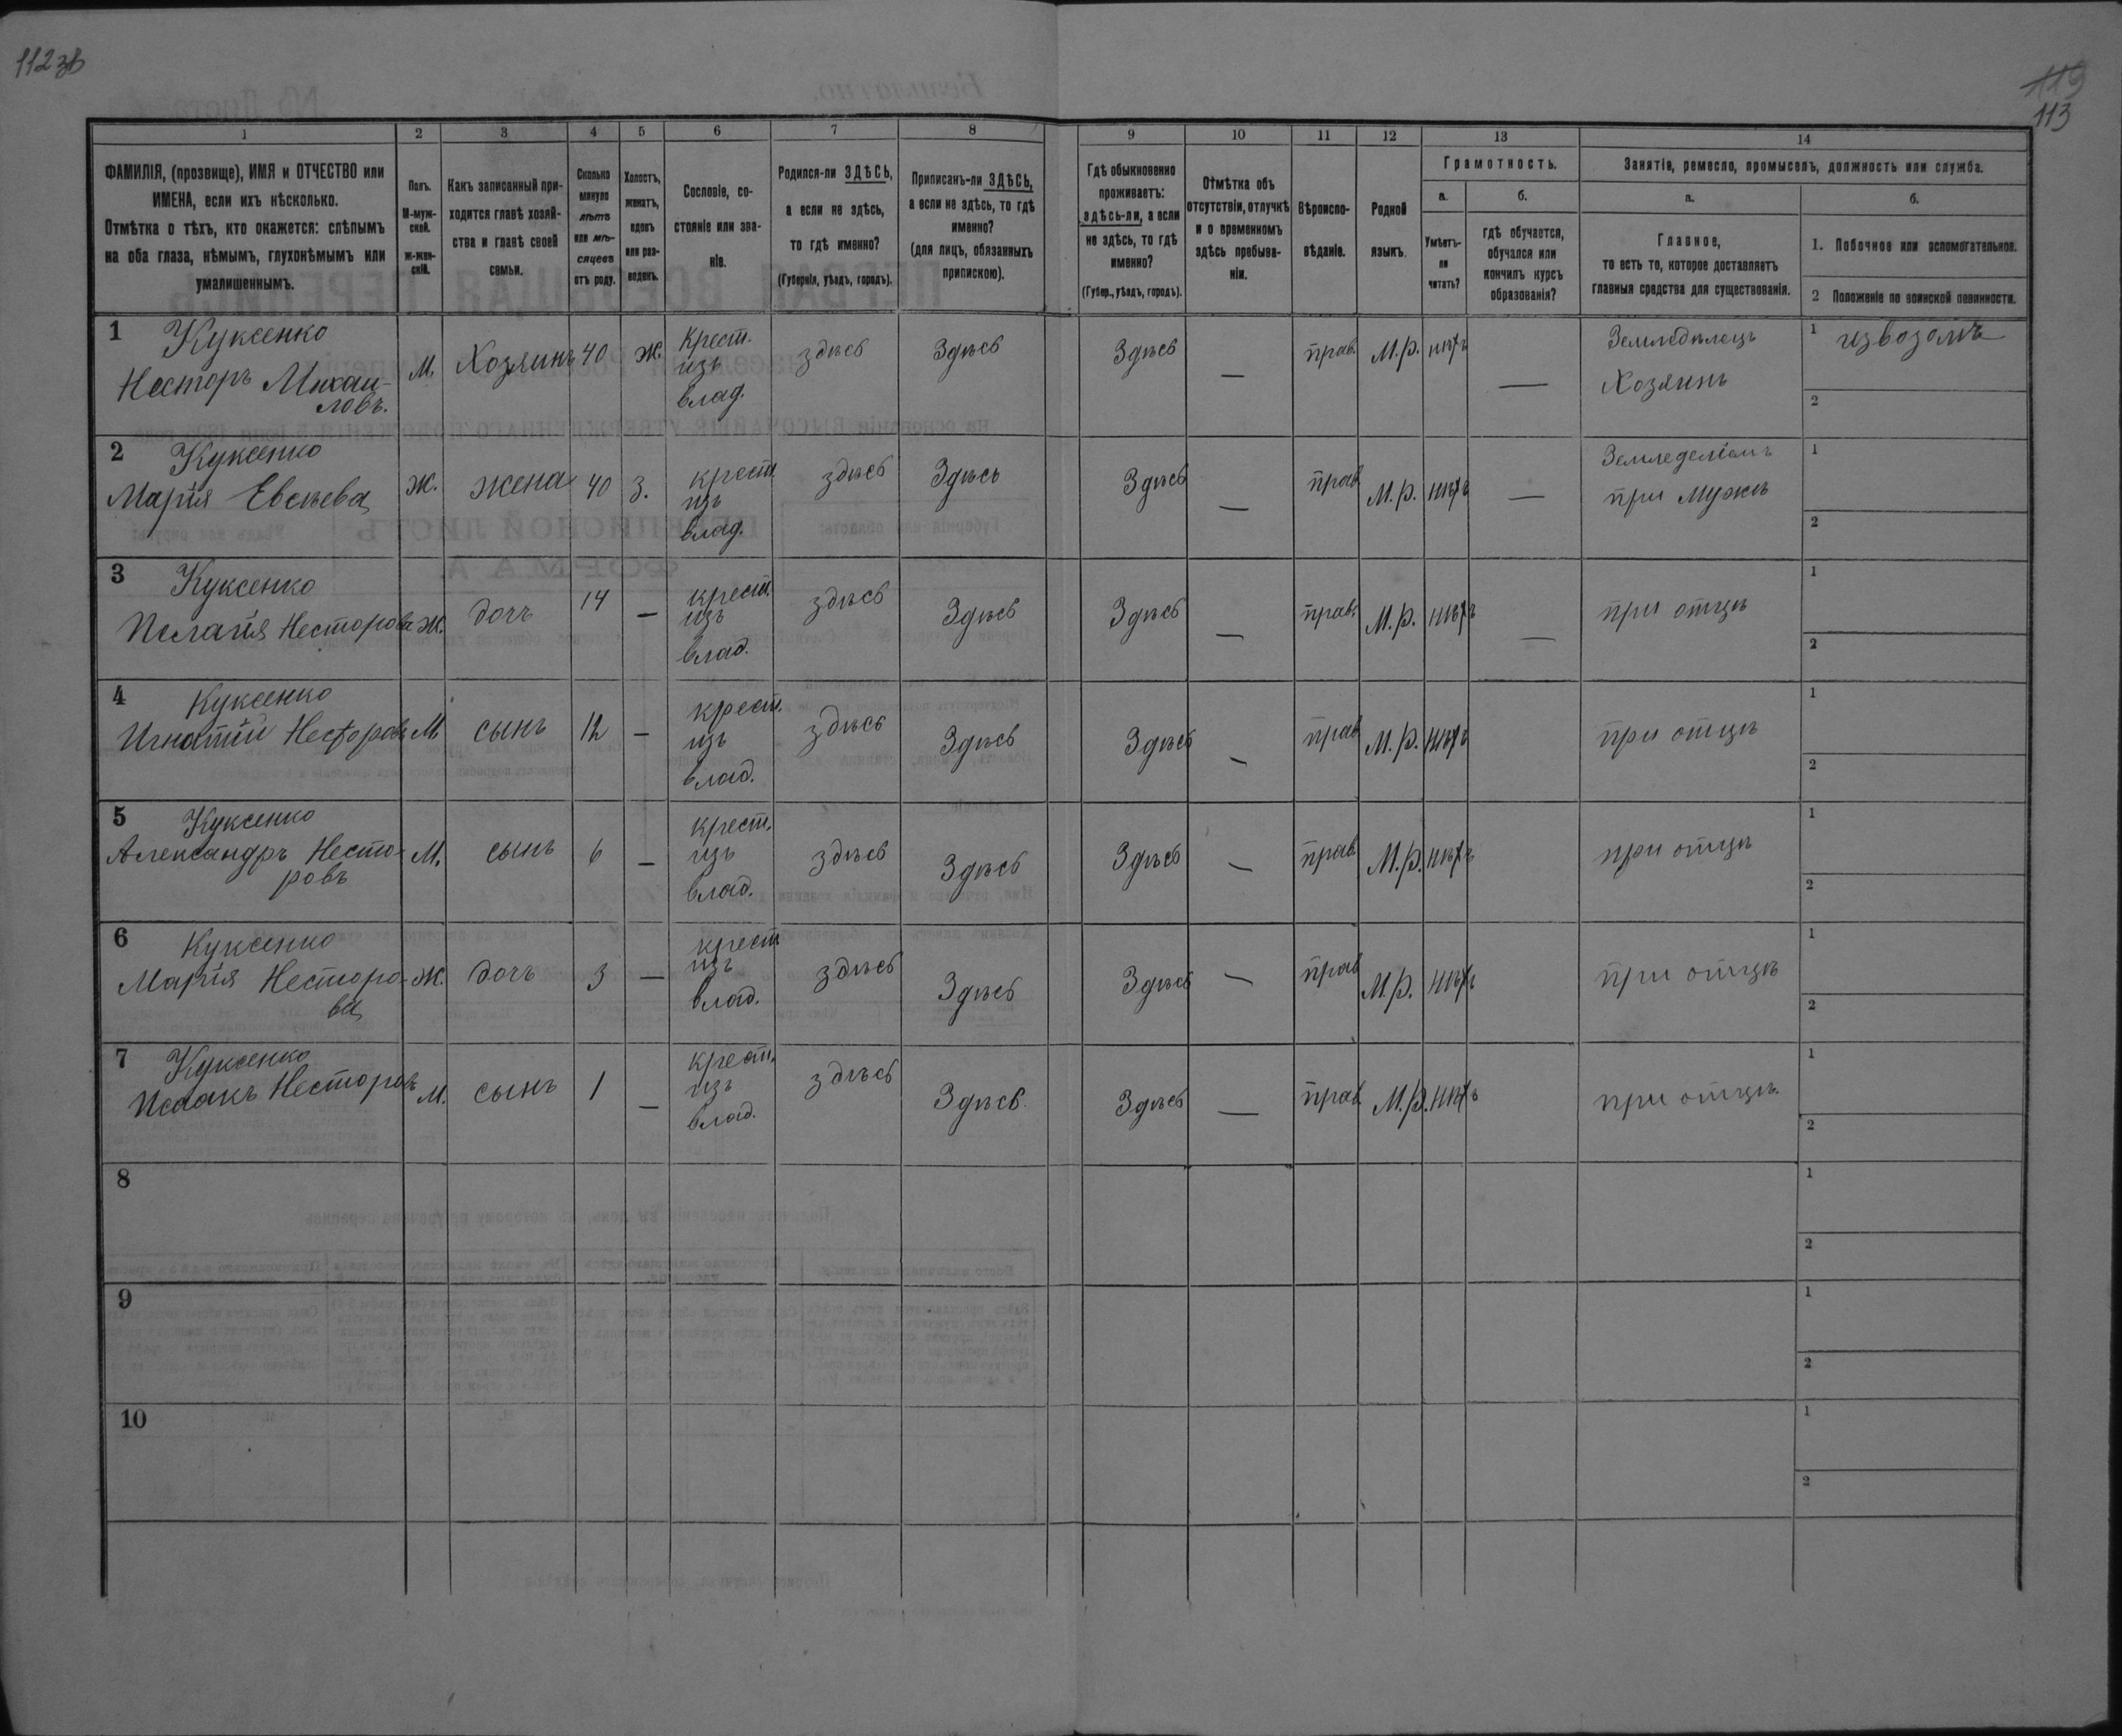 112 зв
119
113
1 2 3 4 5 6 7 8 9 10 11 12 13 14
ФАМИЛІЯ, (прозвище), ИМЯ и ОТЧЕСТВО или
ИМЕНА, если ихъ нѣсколько.
Отмѣтка о тѣхъ, кто окажется: слѣпымъ
на оба глаза, нѣмымъ, глухонѣмымъ или
умалишеннымъ.
Полъ.
М-муж-
ской.
ж-жен-
скій.
Какъ записанный при-
ходится главѣ хозяй-
ства и главѣ своей
семьи.
Сколько
минуло
лѣтъ
или мѣ-
сяцевъ
отъ роду.
Холостъ,
женатъ,
вдовъ
или раз-
веденъ.
Сословіе, со-
стояніе или зва-
ніе.
Родился-ли ЗДѢСЬ,
а если не здѣсь,
то гдѣ именно?
(Губернія, уѣздъ, городъ).
Приписанъ-ли ЗДѢСЬ,
а если не здѣсь, то гдѣ
именно?
(для лицъ, обязанныхъ
припискою).
Гдѣ обыкновенно
проживаетъ:
здѣсь-ли, а если
не здѣсь, то гдѣ
именно?
(Губер., уѣздъ, городъ).
Отмѣтка объ
отсутствіи, отлучкѣ
и о временномъ
здѣсь пребыва-
ніи.
Вѣроиспо-
вѣданіе.
Родной
языкъ.
Грамотность.
а.
Умѣетъ-
ли
читать?
б.
гдѣ обучается,
обучался или
кончилъ курсъ
образованія?
Занятія, ремесло, промыселъ, должность или служба.
а.
Главное,
то есть то, которое доставляетъ
главныя средства для существованія.
б.
1. Побочное или вспомогательное.
2 Положеніе по воинской повинности.
1 Куксенко
Несторъ Михаи-
ловъ.
М. Хозяинъ 40 ж.
Крест.
изъ
влад.
здѣсь Здѣсь Здѣсь — прав. М.р. нѣтъ —
Земледѣлецъ
Хозяинъ
1 извозомъ
2
2 Куксенко
Марія Евсѣева
ж. жена 40 З.
крест.
изъ
влад.
здѣсь Здѣсь Здѣсь — прав М.р. нѣтъ —
Земледеліемъ
при мужѣ
1
2
3 Куксенко
Пелагія Несторова
ж. дочь 14 —
крест.
изъ
влад.
здѣсь Здѣсь Здѣсь — прав. М.р. нѣтъ —
при отцѣ
1
2
4 Куксенко
Игнатій Несторовъ
М сынъ 12 —
крест.
изъ
влад.
здѣсь Здѣсь Здѣсь — прав М.р. нѣтъ
при отцѣ
1
2
5 Куксенко
Александръ Несто-
ровъ
М. сынъ 6 —
крест.
изъ
влад.
здѣсь Здѣсь Здѣсь — прав. М.р. нѣтъ
при отцѣ
1
2
6 Куксенко
Марія Несторо-
ва
ж. дочь 3 —
крест
изъ
влад.
здѣсь Здѣсь Здѣсь — прав М.р. нѣтъ
при отцѣ
1
2
7 Куксенко
Исаакъ Несторовъ
М. сынъ 1 —
крест.
изъ
влад.
здѣсь Здѣсь Здѣсь — прав. М.р. нѣтъ
при отцѣ.
1
2
8
1
2
9
1
2
10
1
2